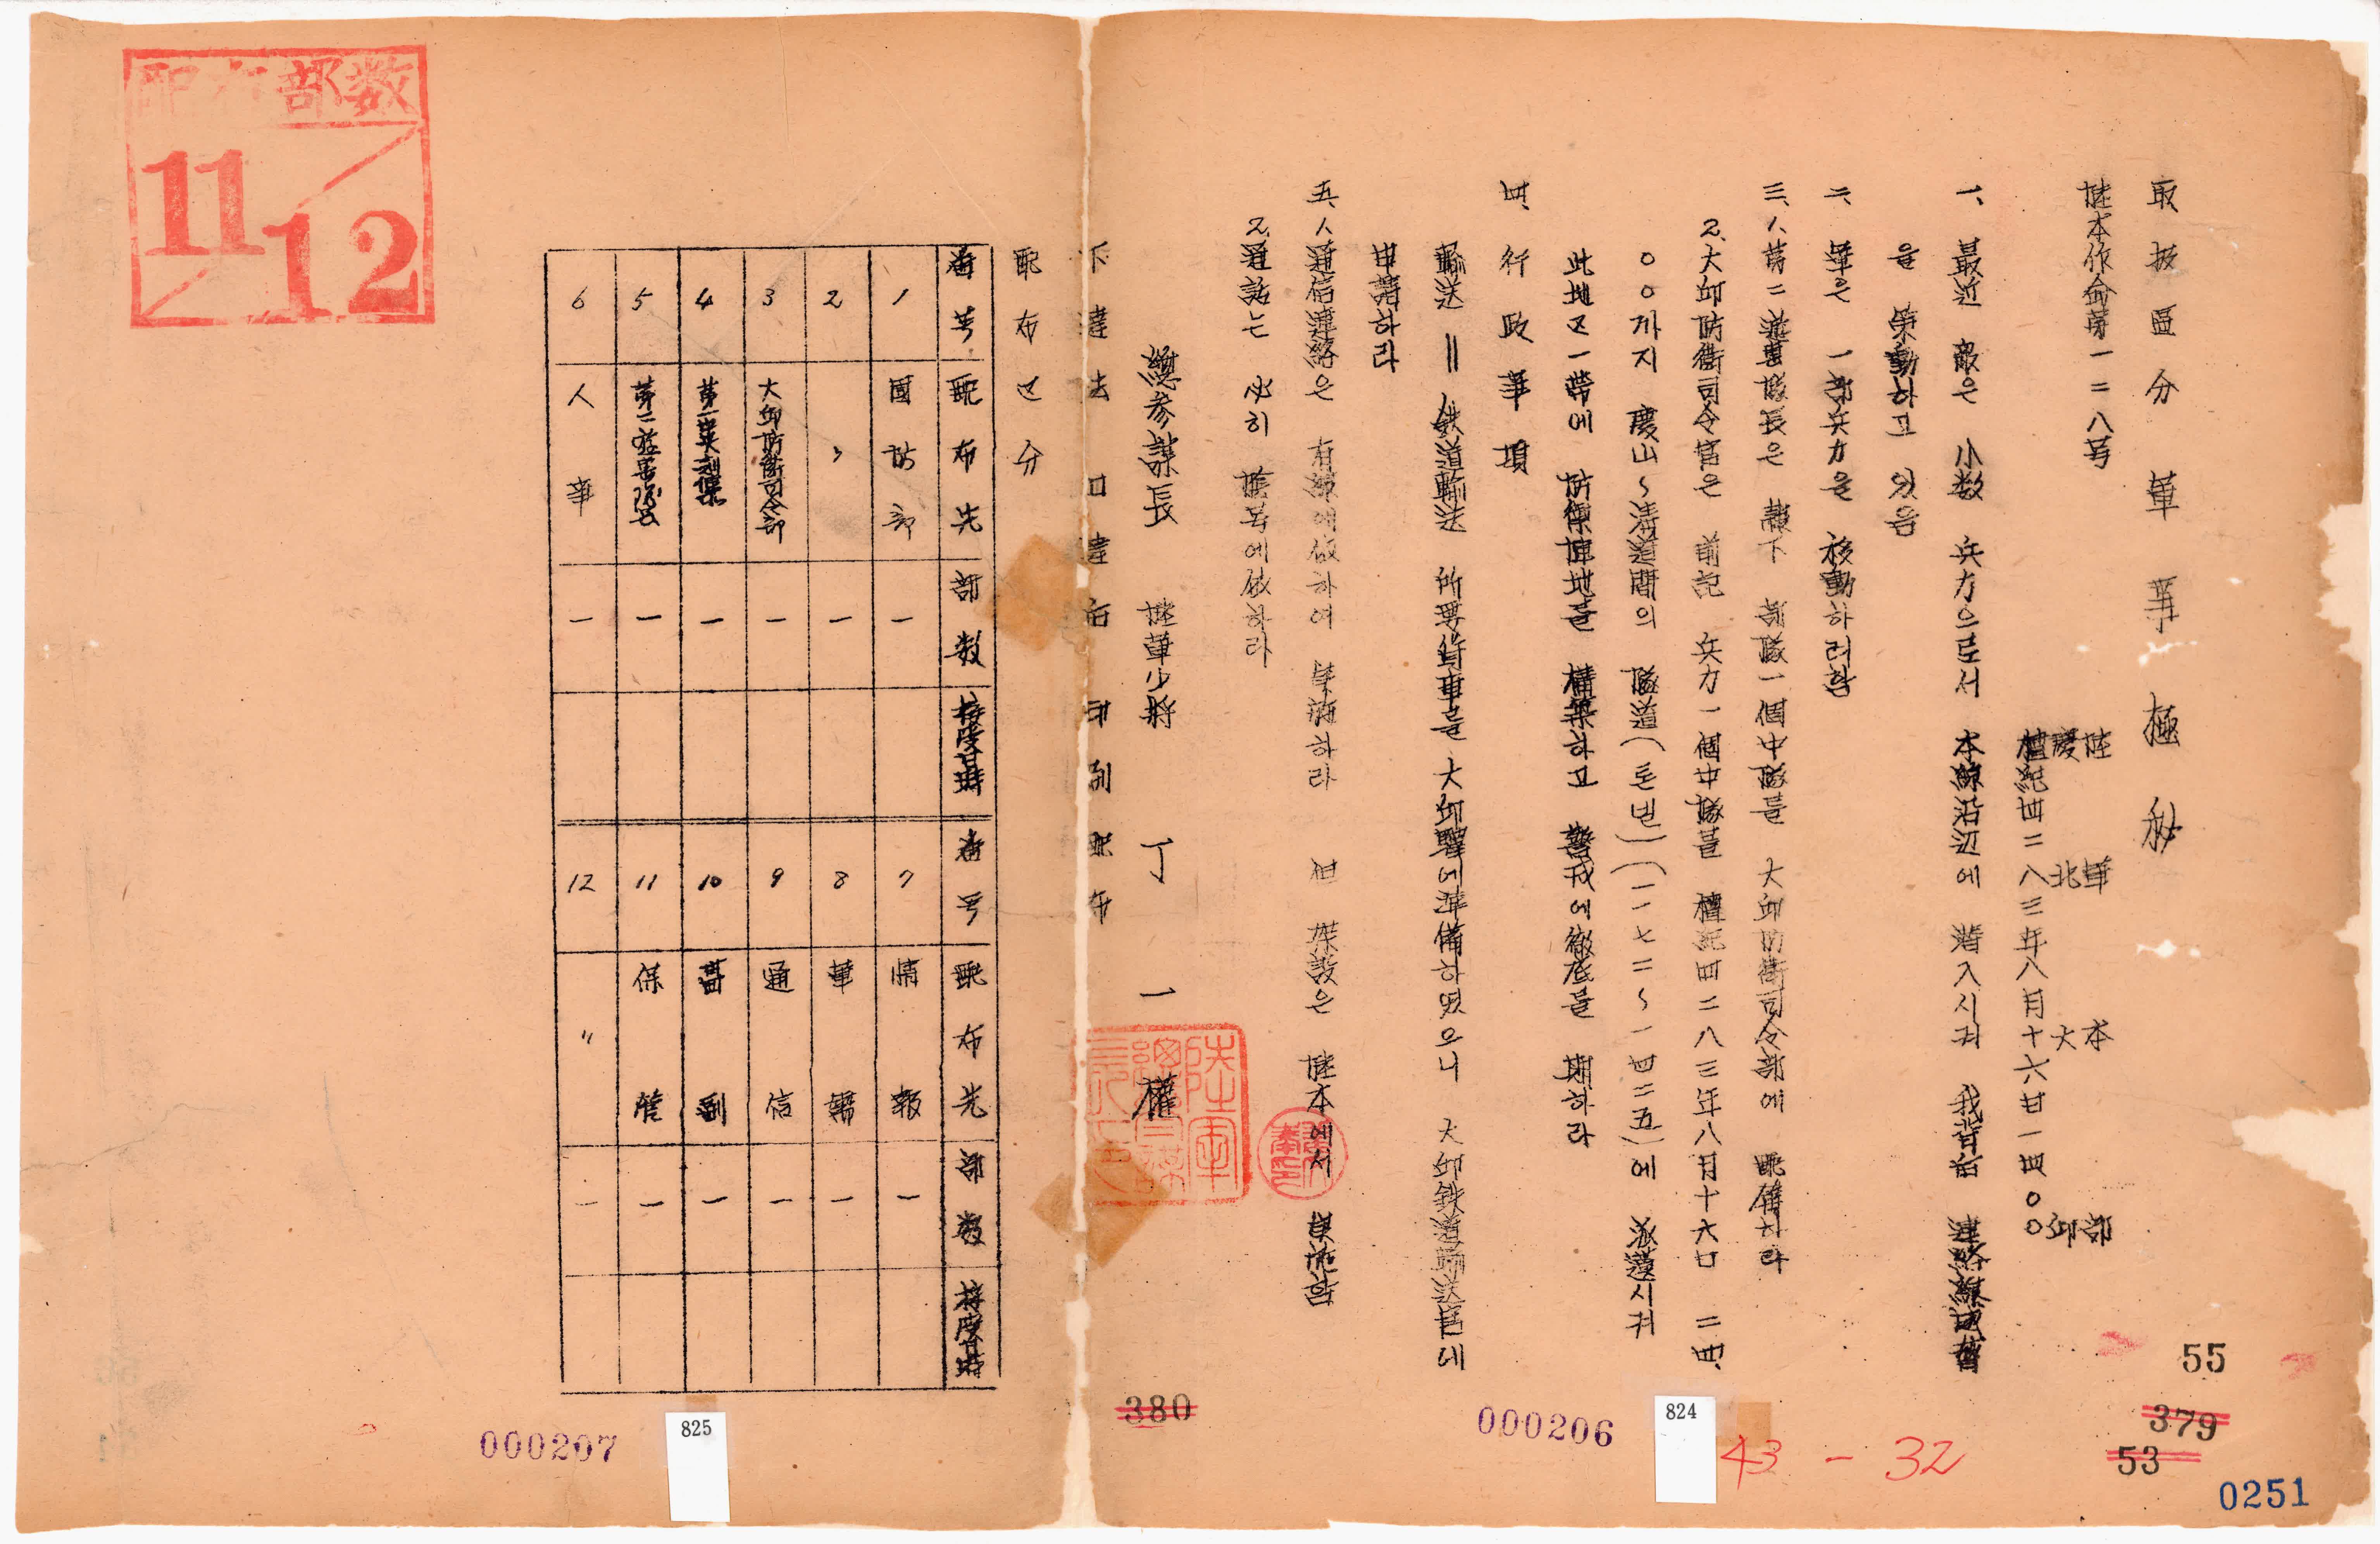 取扱區分 軍事極秘
陸本作命第一二八号
陸軍本部
慶北大邱
檀紀四二八三年八月十六日一四〇〇
一、最近 敵은 小数 兵力으로서 本線沿辺에 潜入시켜 我背后 連絡線
을 策動하고 있음
二、軍은 一部兵力을 移動하려함
三、1. 第二遊擊隊長은 麾下 部隊一個中隊를 大邱防衛司令部에 配属하라
2. 大邱防衛司令官은 前記 兵力一個中隊를 檀紀四二八三年八月十六日 二四、
〇〇까지 慶山~淸道間의 隧道(돈넬)(一一七二~一四二五)에 派遣시켜
此地区一帶에 防禦陣地를 構築하고 警戒에 徹底를 期하라
四、行政事項
輸送 = 鉄道輸送 所要貨車를 大邱驛에準備하였으니 大邱鉄道輸送官에
申請하라
五、1. 通信連絡은 有線에依하여 実施하라 但 架設은 陸本에서 実施함
2. 通話는 必히 陰語에依하라
總参謀長 陸軍少將 丁一權
下達法 口達后 印刷配布
配布区分
番号 配布先 部数 接受日時 番号 配布先 部数 接受日時
1 國防部 一 7 情報 一
2 〃 一 8 軍需 一
3 大邱防衛司令部 一 9 通信 一
4 第二 一 10 副 一
5 第二遊擊隊長 一 11 保管 一
6 人事 一 12 〃 一
配布部数
11/12
55
379
53
0251
43-32
824
000206
380
825
000207